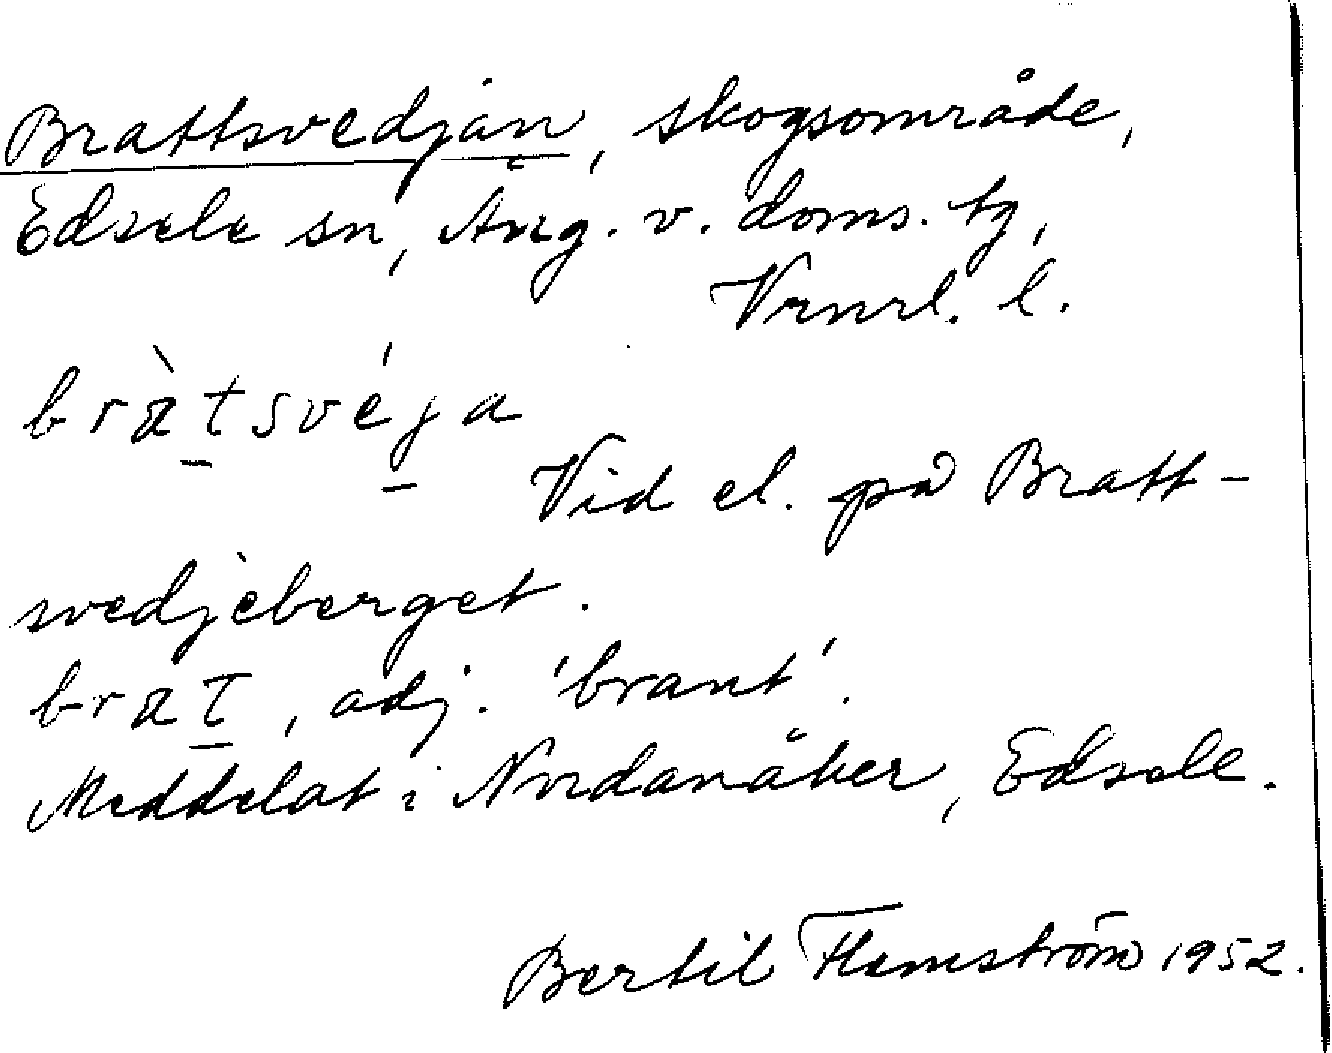 Brattsvedjan, skogsområde,
Edsele sn, Ång. v. doms. tg,
Vrnrl. l.
bràtsvéja
Vid el. på Bratt-
svedjeberget.
brat, adj. 'brant'.
Meddelat i Nordanåker, Edsele.
Bertil Flemström 1952.